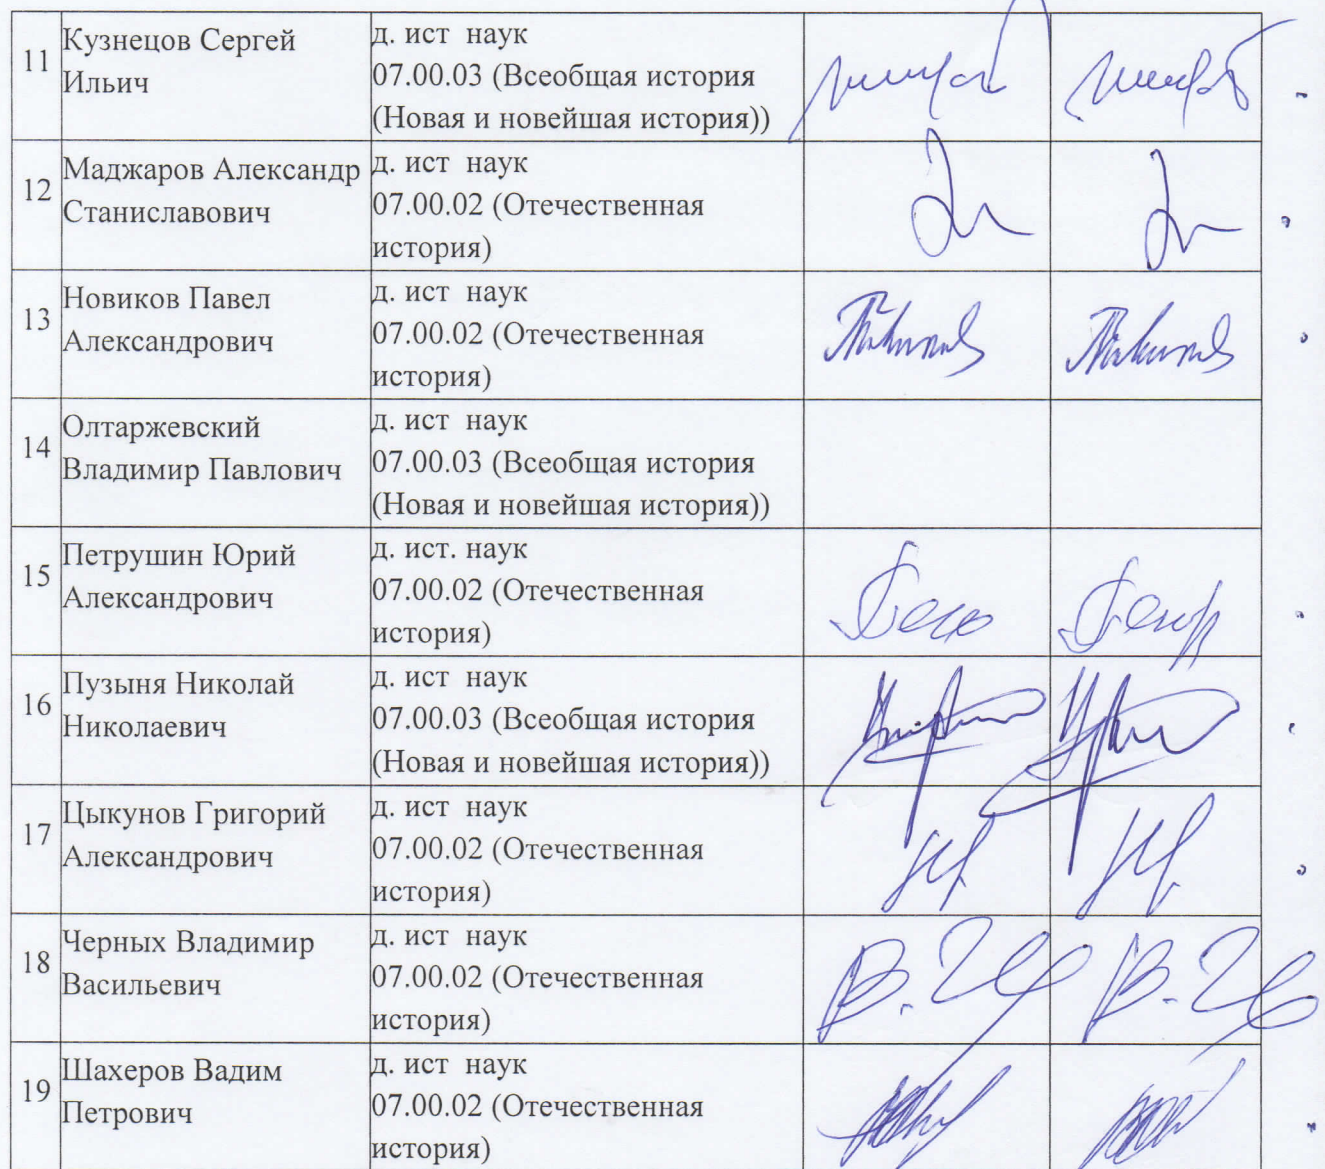 11
Кузнецов Сергей
Ильич
д. ист наук
07.00.03 (Всеобщая история
(Новая и новейшая история))
12
Маджаров Александр
Станиславович
д. ист наук
07.00.02 (Отечественная
история)
13
Новиков Павел
Александрович
д. ист наук
07.00.02 (Отечественная
история)
14
Олтаржевский
Владимир Павлович
д. ист наук
07.00.03 (Всеобщая история
(Новая и новейшая история))
15
Петрушин Юрий
Александрович
д. ист. наук
07.00.02 (Отечественная
история)
16
Пузыня Николай
Николаевич
д. ист наук
07.00.03 (Всеобщая история
(Новая и новейшая история))
17
Цыкунов Григорий
Александрович
д. ист наук
07.00.02 (Отечественная
история)
18
Черных Владимир
Васильевич
д. ист наук
07.00.02 (Отечественная
история)
19
Шахеров Вадим
Петрович
д. ист наук
07.00.02 (Отечественная
история)